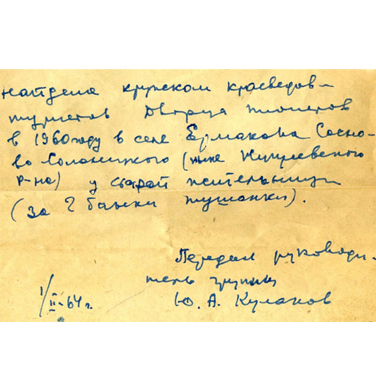 найдена кружком краеведов-
туристов Дворца пионеров
в 1960 году в селе Ермакова Сосно-
во-Солонецкого (ныне Жигулевского
р-на) у старой жительницы
(за 2 банки тушонки).
Передал руководи-
тель группы
Ю. А. Кулаков
1/II-64 г.